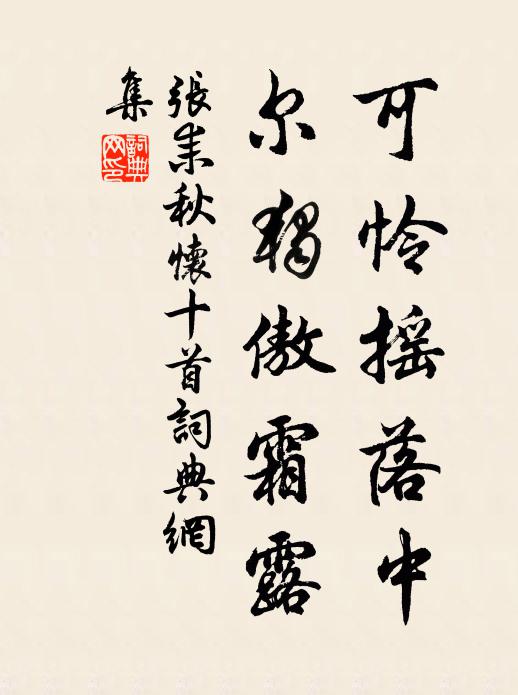 可怜摇落中
尔独傲霜露
張耒秋懷十首詞典網
集
詞典網印